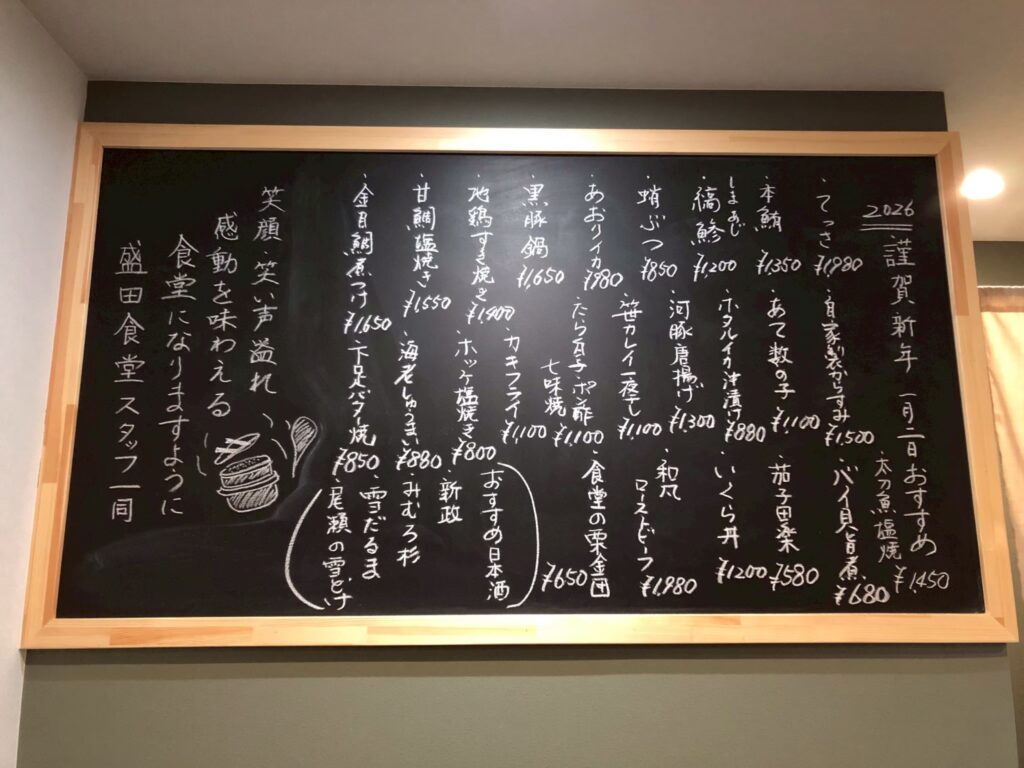 2026 謹賀新年 一月二日おすすめ
太刀魚塩焼 ¥1,450
・てっさ ¥1,980
・自家製からすみ ¥1,500
・バイ貝旨煮 ¥680
・本鮪 ¥1,350
・あて数の子 ¥1,100
・茄子田楽 ¥580
・しまあじ
縞鯵 ¥1,200
・ホタルイカ沖漬け ¥880
・いくら丼 ¥1200
・蛸ぶつ ¥850
・河豚唐揚げ ¥1,300
・和風
ローストビーフ ¥1,980
・あおりイカ ¥980
・笹カレイ一夜干し ¥1,100
・食堂の栗金団 ¥650
・黒豚鍋 ¥1,650
・たら白子 ポン酢
七味焼 ¥1,100
・地鶏すき焼き ¥1,400
・カキフライ ¥1,100
・甘鯛塩焼き ¥1,550
・ホッケ塩焼き ¥800
・金目鯛煮つけ ¥1,650
・海老しゅうまい ¥880
・下足バター焼 ¥850
おすすめ日本酒
・新政
・みむろ杉
・雪だるま
・尾瀬の雪どけ
笑顔・笑い声溢れ、
感動を味わえる
食堂になりますように
盛田食堂スタッフ一同